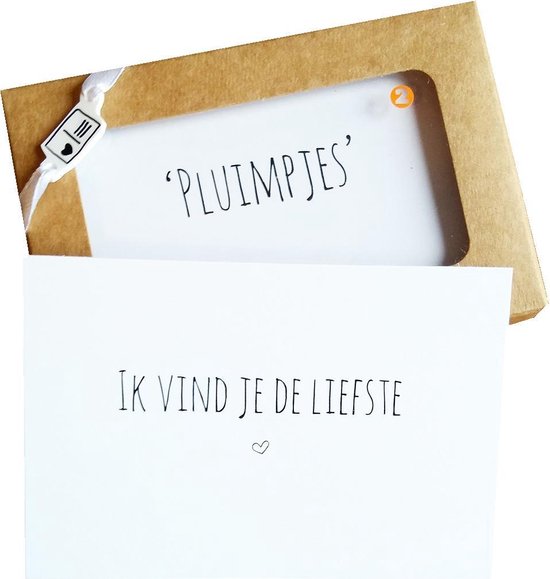 2
‘PLUIMPJES’
IK VIND JE DE LIEFSTE